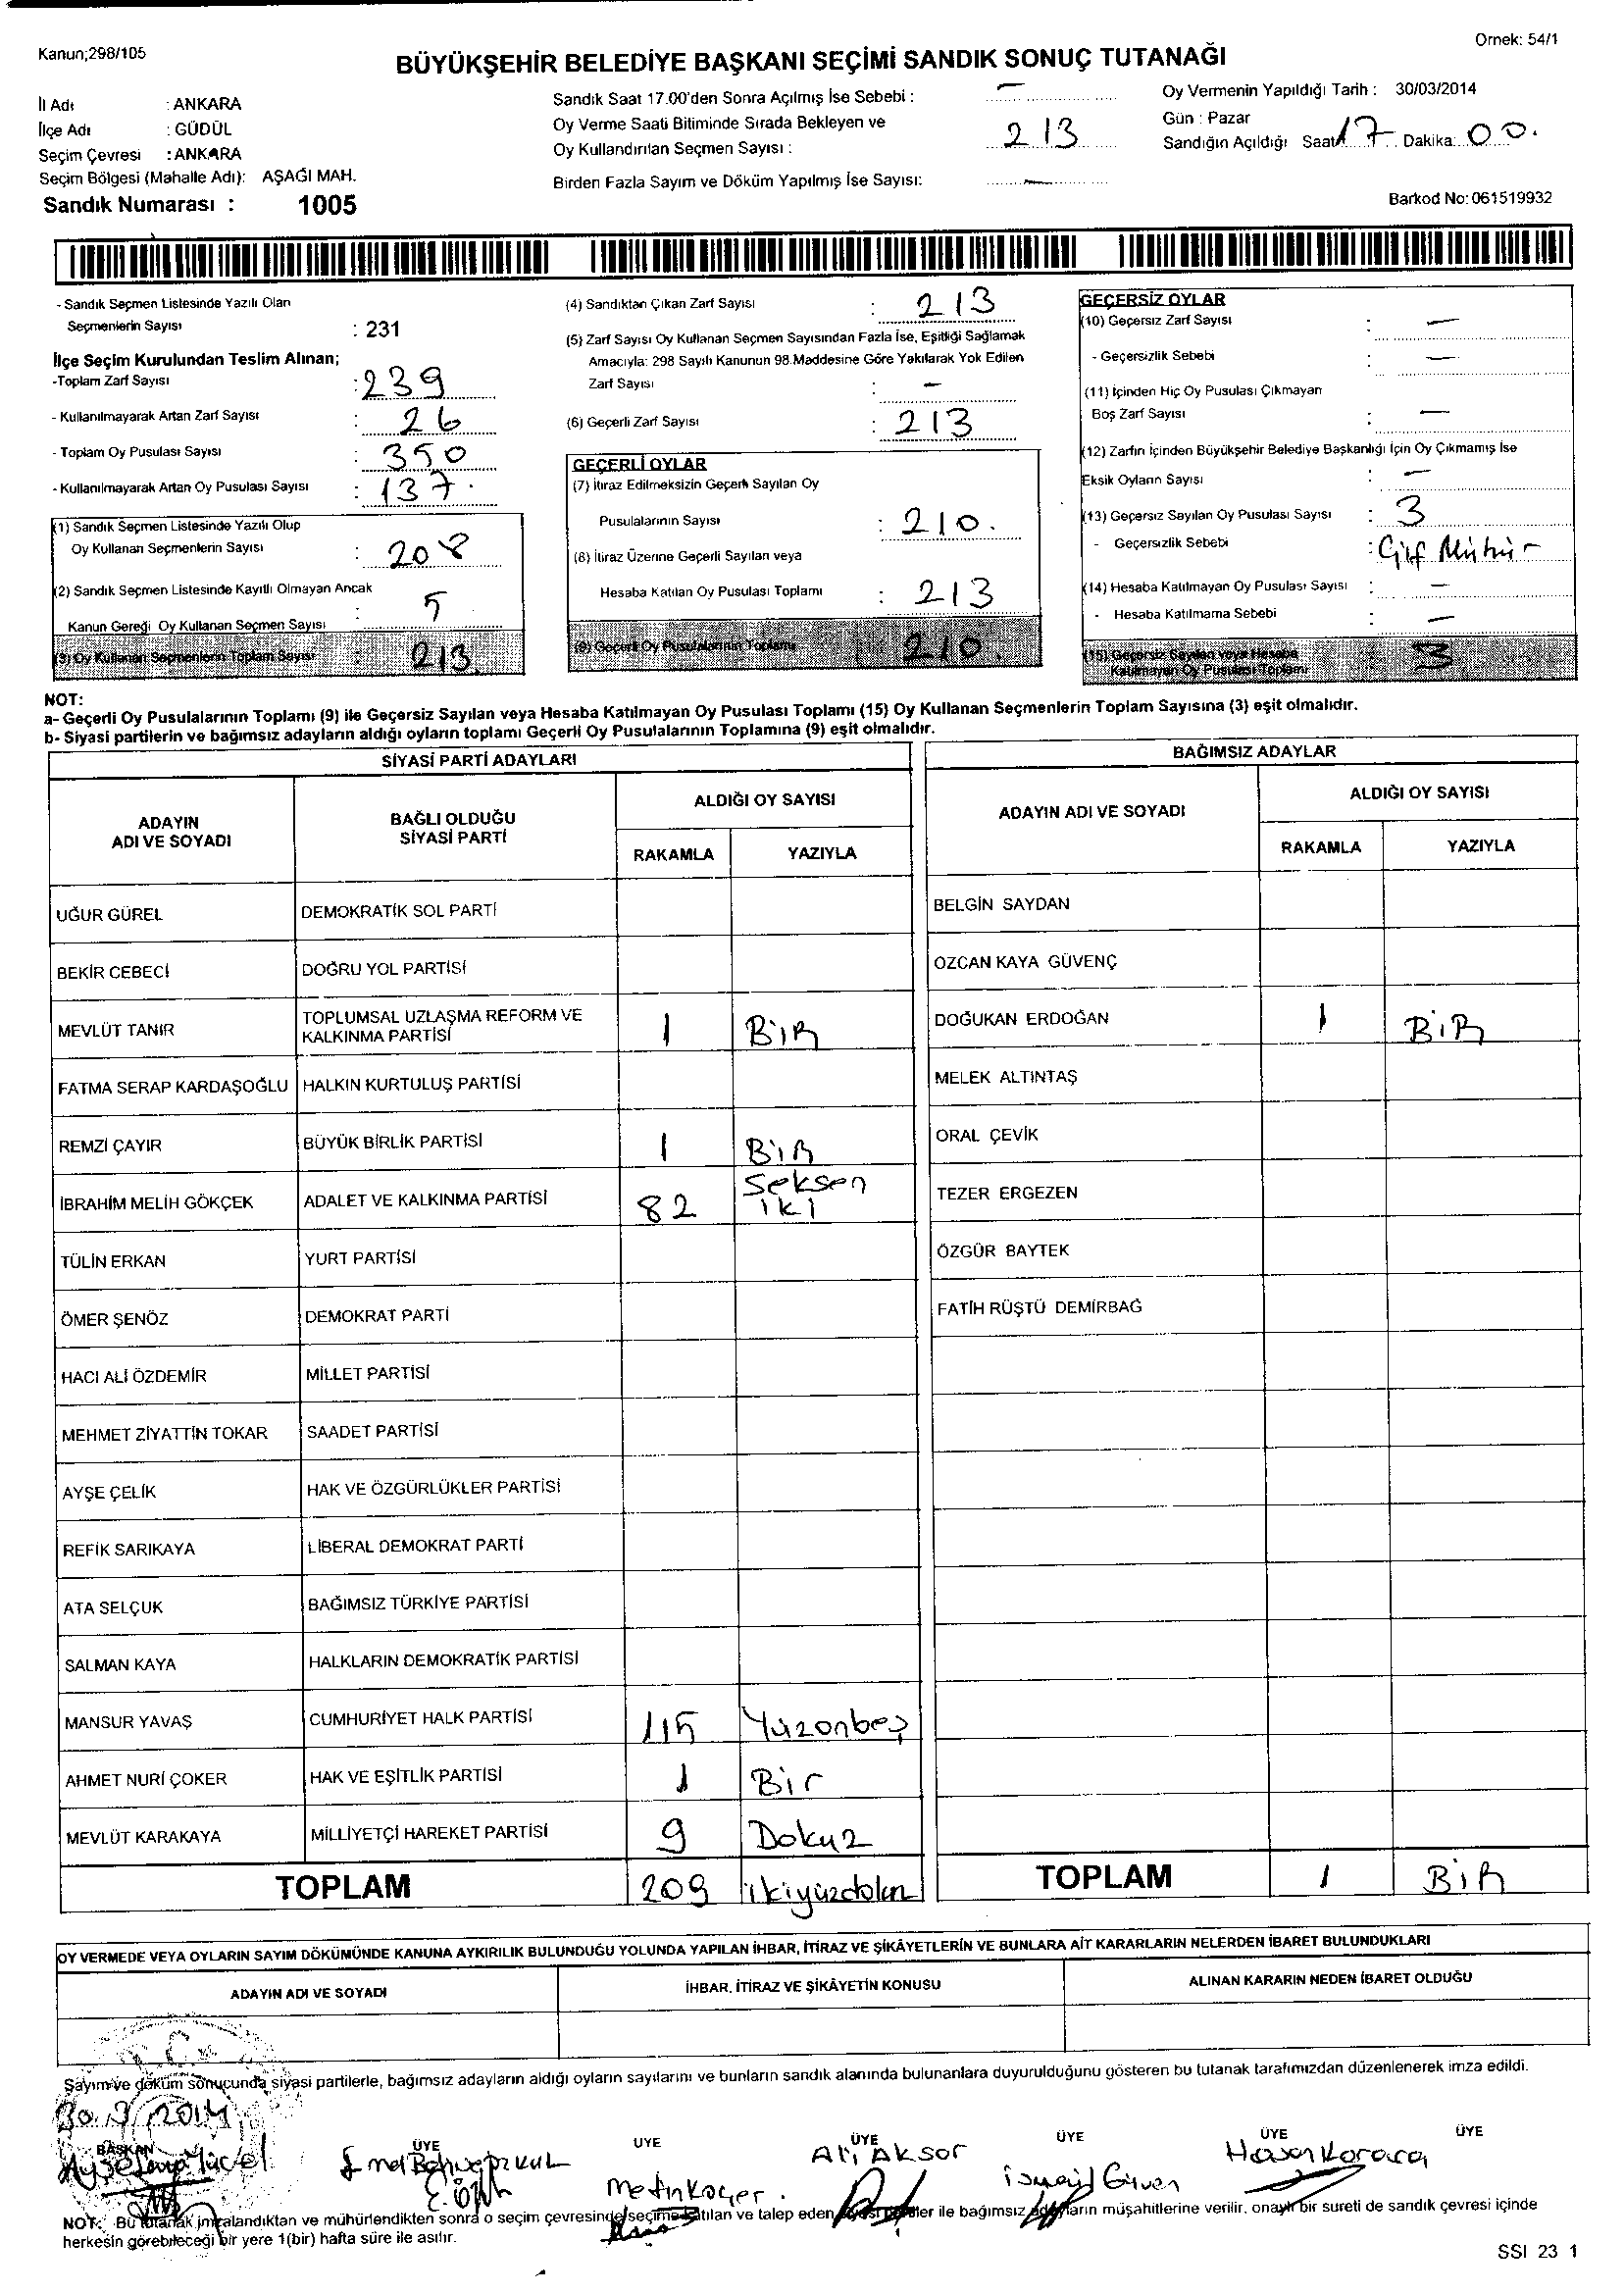 Kanun;298/105
Ornek: 54/1
BÜYÜKŞEHİR BELEDİYE BAŞKANI SEÇİMİ SANDIK SONUÇ TUTANAĞI
İl Adı : ANKARA
İlçe Adı : GÜDÜL
Seçim Çevresi : ANKARA
Seçim Bölgesi (Mahalle Adı): AŞAĞI MAH.
Sandık Numarası : 1005
Sandık Saat 17.00'den Sonra Açılmış İse Sebebi : —
Oy Verme Saati Bitiminde Sırada Bekleyen ve
Oy Kullandırılan Seçmen Sayısı : 213
Birden Fazla Sayım ve Döküm Yapılmış İse Sayısı: —
Oy Vermenin Yapıldığı Tarih : 30/03/2014
Gün : Pazar
Sandığın Açıldığı Saat 17 Dakika: 00.
Barkod No: 061519932
- Sandık Seçmen Listesinde Yazılı Olan
Seçmenlerin Sayısı : 231
İlçe Seçim Kurulundan Teslim Alınan;
-Toplam Zarf Sayısı : 239
- Kullanılmayarak Artan Zarf Sayısı : 26
- Toplam Oy Pusulası Sayısı : 350
- Kullanılmayarak Artan Oy Pusulası Sayısı : 137.
(1) Sandık Seçmen Listesinde Yazılı Olup
Oy Kullanan Seçmenlerin Sayısı : 208
(2) Sandık Seçmen Listesinde Kayıtlı Olmayan Ancak
Kanun Gereği Oy Kullanan Seçmen Sayısı : 5
(3) Oy Kullanan Seçmenlerin Toplam Sayısı : 213
(4) Sandıktan Çıkan Zarf Sayısı : 213
(5) Zarf Sayısı Oy Kullanan Seçmen Sayısından Fazla İse, Eşitliği Sağlamak
Amacıyla: 298 Sayılı Kanunun 98.Maddesine Göre Yakılarak Yok Edilen
Zarf Sayısı : —
(6) Geçerli Zarf Sayısı : 213
GEÇERLİ OYLAR
(7) İtiraz Edilmeksizin Geçerli Sayılan Oy
Pusulalarının Sayısı : 210.
(8) İtiraz Üzerine Geçerli Sayılan veya
Hesaba Katılan Oy Pusulası Toplamı : 213
(9) Geçerli Oy Pusulalarının Toplamı 210.
GEÇERSİZ OYLAR
(10) Geçersiz Zarf Sayısı : —
- Geçersizlik Sebebi : —
(11) İçinden Hiç Oy Pusulası Çıkmayan
Boş Zarf Sayısı : —
(12) Zarfın İçinden Büyükşehir Belediye Başkanlığı İçin Oy Çıkmamış İse
Eksik Oyların Sayısı : —
(13) Geçersiz Sayılan Oy Pusulası Sayısı : 3
- Geçersizlik Sebebi : Çift Mühür
(14) Hesaba Katılmayan Oy Pusulası Sayısı : —
- Hesaba Katılmama Sebebi : —
(15) Geçersiz Sayılan veya Hesaba
Katılmayan Oy Pusulası Toplamı 3
NOT:
a- Geçerli Oy Pusulalarının Toplamı (9) ile Geçersiz Sayılan veya Hesaba Katılmayan Oy Pusulası Toplamı (15) Oy Kullanan Seçmenlerin Toplam Sayısına (3) eşit olmalıdır.
b- Siyasi partilerin ve bağımsız adayların aldığı oyların toplamı Geçerli Oy Pusulalarının Toplamına (9) eşit olmalıdır.
SİYASİ PARTİ ADAYLARI
ADAYIN ADI VE SOYADI
BAĞLI OLDUĞU SİYASİ PARTİ
ALDIĞI OY SAYISI
RAKAMLA YAZIYLA
UĞUR GÜREL DEMOKRATİK SOL PARTİ
BEKİR CEBECİ DOĞRU YOL PARTİSİ
MEVLÜT TANIR TOPLUMSAL UZLAŞMA REFORM VE KALKINMA PARTİSİ 1 BİR
FATMA SERAP KARDAŞOĞLU HALKIN KURTULUŞ PARTİSİ
REMZİ ÇAYIR BÜYÜK BİRLİK PARTİSİ 1 BİR
İBRAHİM MELİH GÖKÇEK ADALET VE KALKINMA PARTİSİ 82 Seksen iki
TÜLİN ERKAN YURT PARTİSİ
ÖMER ŞENÖZ DEMOKRAT PARTİ
HACI ALİ ÖZDEMİR MİLLET PARTİSİ
MEHMET ZİYATTİN TOKAR SAADET PARTİSİ
AYŞE ÇELİK HAK VE ÖZGÜRLÜKLER PARTİSİ
REFİK SARIKAYA LİBERAL DEMOKRAT PARTİ
ATA SELÇUK BAĞIMSIZ TÜRKİYE PARTİSİ
SALMAN KAYA HALKLARIN DEMOKRATİK PARTİSİ
MANSUR YAVAŞ CUMHURİYET HALK PARTİSİ 115 Yüzonbeş
AHMET NURİ ÇOKER HAK VE EŞİTLİK PARTİSİ 1 Bir
MEVLÜT KARAKAYA MİLLİYETÇİ HAREKET PARTİSİ 9 Dokuz
TOPLAM 209
BAĞIMSIZ ADAYLAR
ADAYIN ADI VE SOYADI
ALDIĞI OY SAYISI
RAKAMLA YAZIYLA
BELGİN SAYDAN
OZCAN KAYA GÜVENÇ
DOĞUKAN ERDOĞAN 1 BİR
MELEK ALTINTAŞ
ORAL ÇEVİK
TEZER ERGEZEN
ÖZGÜR BAYTEK
FATİH RÜŞTÜ DEMİRBAĞ
TOPLAM 1 BİR
OY VERMEDE VEYA OYLARIN SAYIM DÖKÜMÜNDE KANUNA AYKIRILIK BULUNDUĞU YOLUNDA YAPILAN İHBAR, İTİRAZ VE ŞİKÂYETLERİN VE BUNLARA AİT KARARLARIN NELERDEN İBARET BULUNDUKLARI
ADAYIN ADI VE SOYADI İHBAR, İTİRAZ VE ŞİKÂYETİN KONUSU ALINAN KARARIN NEDEN İBARET OLDUĞU
Sayım ve döküm sonucunda siyasi partilerle, bağımsız adayların aldığı oyların sayılarını ve bunların sandık alanında bulunanlara duyurulduğunu gösteren bu tutanak tarafımızdan düzenlenerek imza edildi.
30.3.2014
BAŞKAN ÜYE ÜYE ÜYE ÜYE ÜYE ÜYE
Metin Koçer Ali Aksor İsmail Güven Hasan Karaca
NOT: Bu tutanak imzalandıktan ve mühürlendikten sonra o seçim çevresinde seçime katılan ve talep eden siyasi partiler ile bağımsız adayların müşahitlerine verilir, onaylı bir sureti de sandık çevresi içinde
herkesin görebileceği bir yere 1(bir) hafta süre ile asılır.
SSI 23 1